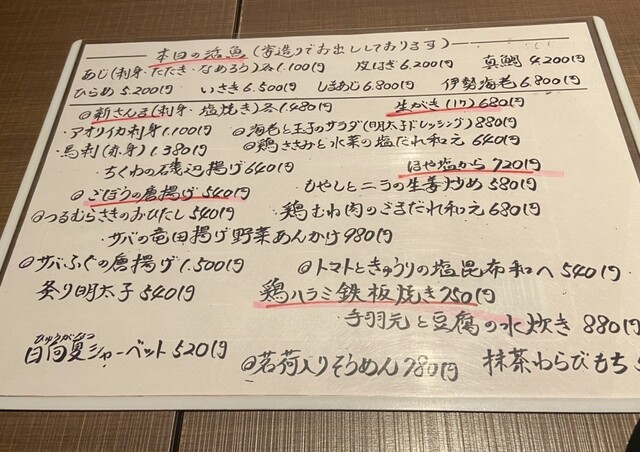 本日の活魚(姿造りでお出ししております)
あじ(刺身・たたき・なめろう)各1.100円 皮はぎ6.200円 真鯛4.200円
ひらめ5.200円 いさき6.500円 しまあじ6.800円 伊勢海老6.800円
◎新さんま(刺身・塩焼き)各1.480円 生がき(1ケ)680円
・アオリイカ刺身1.100円 ◎海老と玉子のサラダ(明太子ドレッシング)880円
・馬刺(赤身)1.380円 ◎鶏ささみと水菜の塩だれ和え640円
ちくわの磯辺揚げ640円 ほや塩から720円
◎ごぼうの唐揚げ540円 もやしとニラの生姜炒め580円
◎つるむらさきのおひたし540円 鶏むね肉のごまだれ和え680円
・サバの竜田揚げ野菜あんかけ980円
◎サバふぐの唐揚げ1.500円 ◎トマトときゅうりの塩昆布和へ540円
炙り明太子540円 鶏ハラミ鉄板焼き750円
手羽元と豆腐の水炊き880円
ひゅうがなつ
日向夏シャーベット520円 ◎茗荷入りそうめん780円 抹茶わらびもち